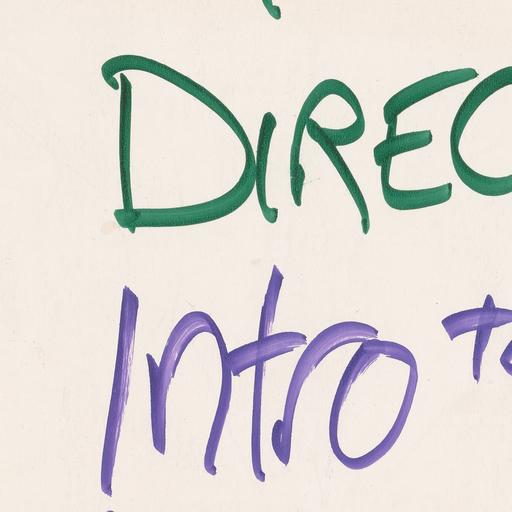 DIREC
Intro to